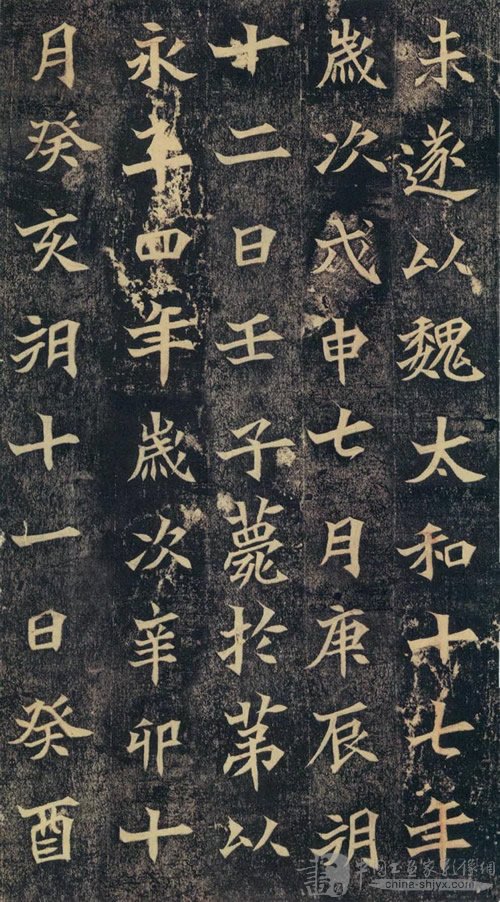 未遂以魏太和十七年
歲次戊申七月庚辰朔
廿二日壬子薨於第以
永平四年歲次辛卯十
月癸亥朔十一日癸酉
china-shjyx.com